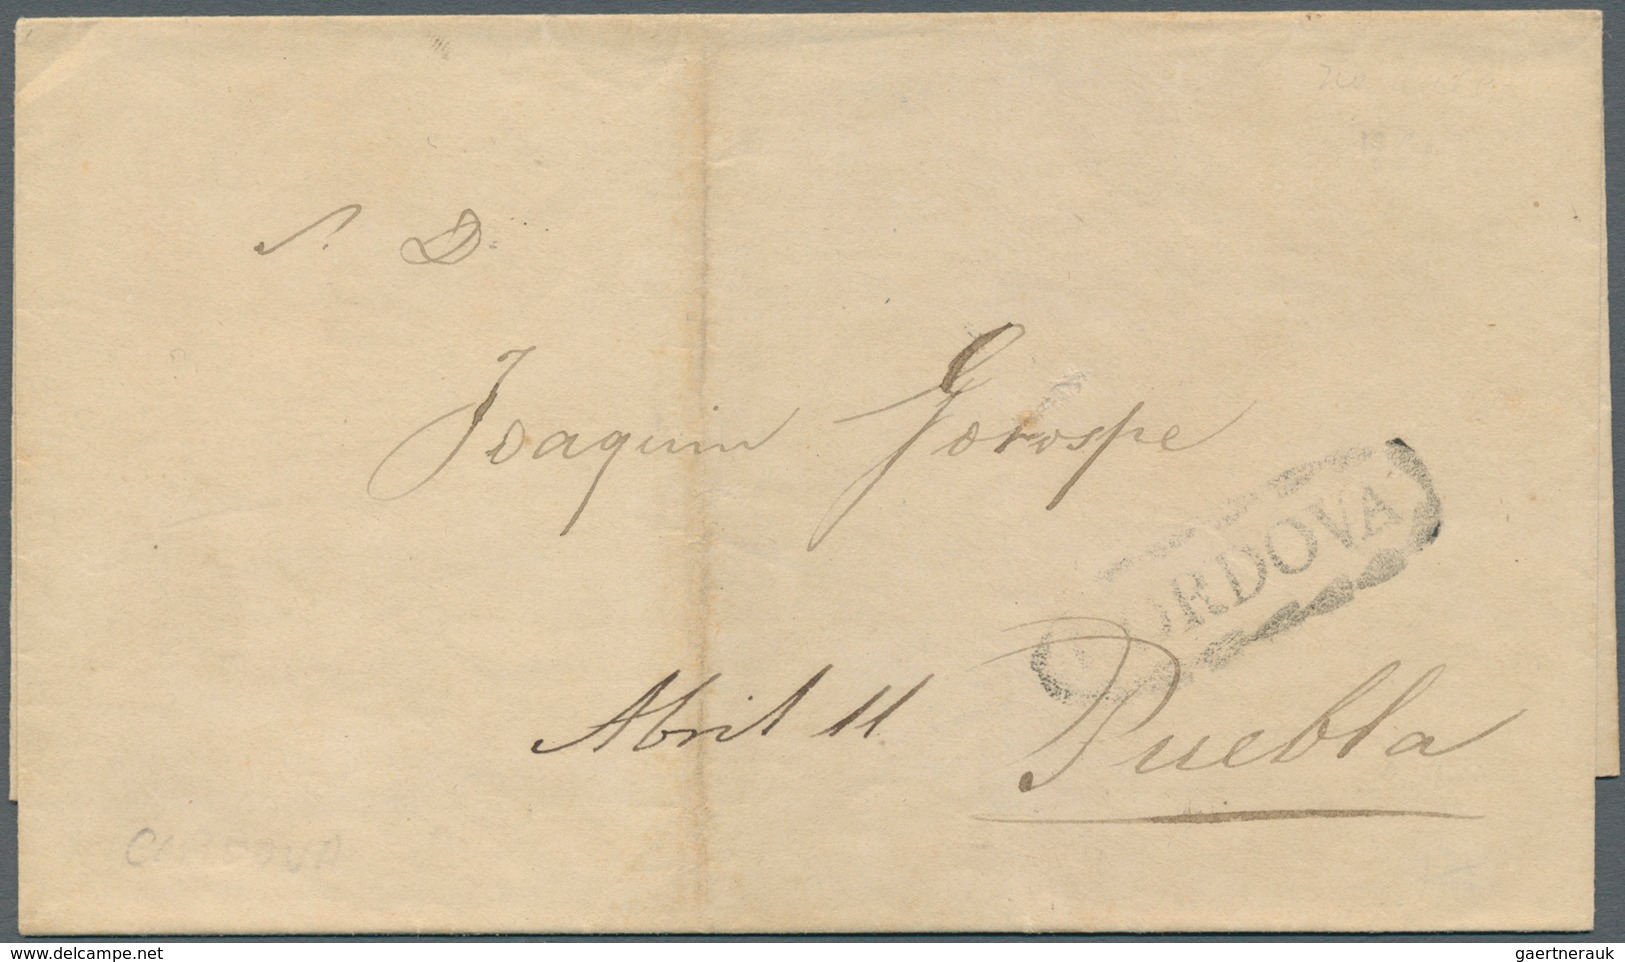 S. D.
Joaquin Gorospe
CORDOVA
Abril 11
Puebla
CORDOVA
delcampe.net
gaertnerauk